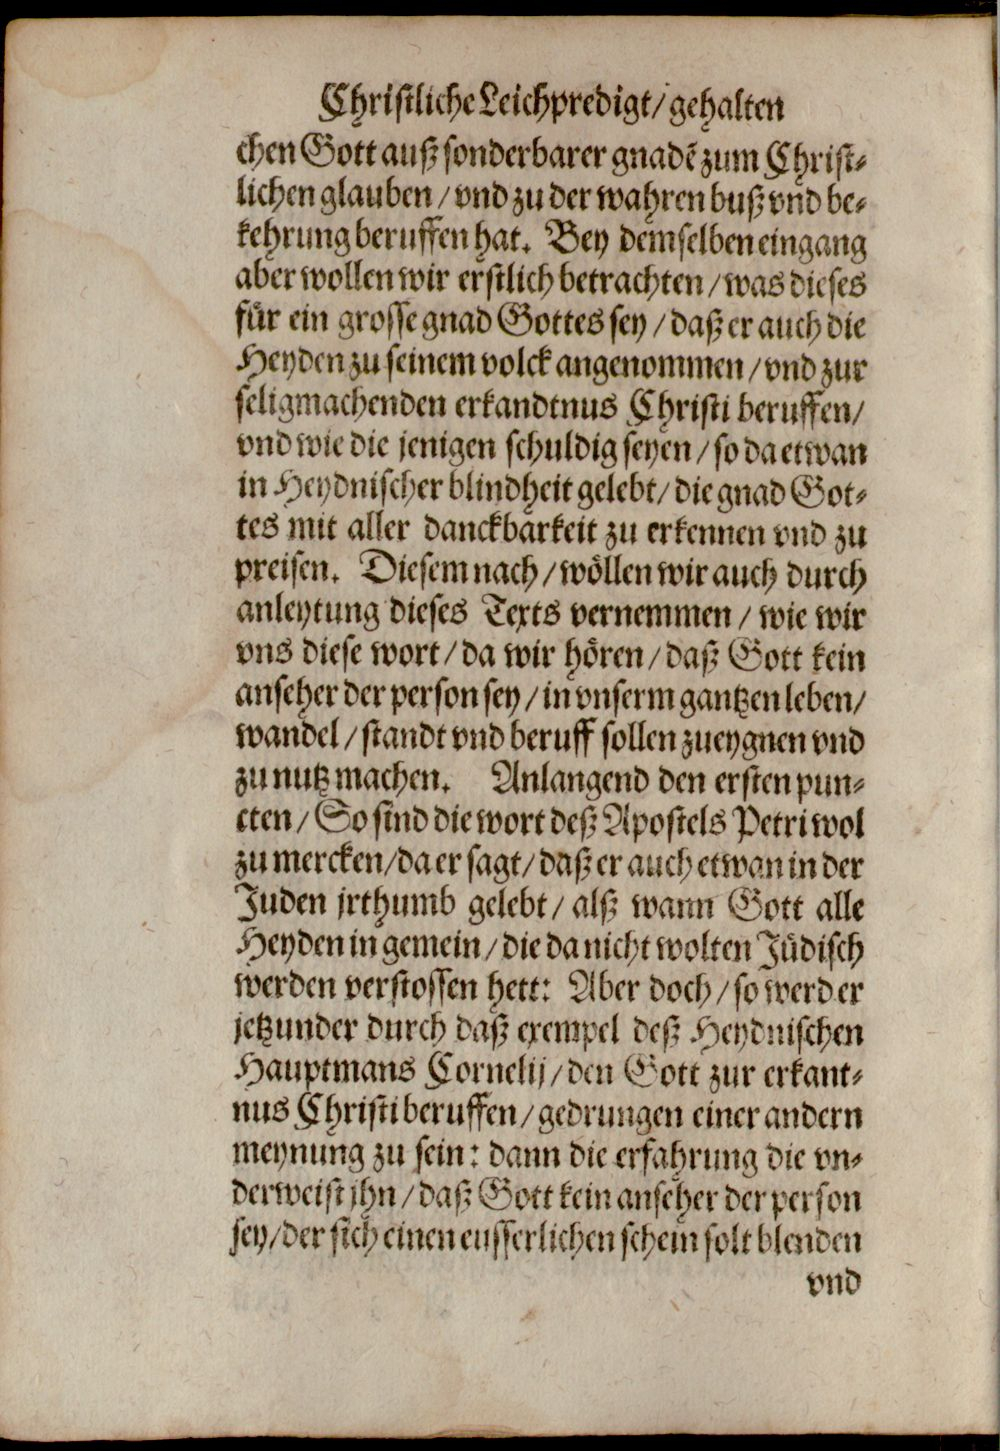 Christliche Leichpredigt/ gehalten
chen Gott auß sonderbarer gnadẽ zum Christ-
lichen glauben / vnd zu der wahren buß vnd be-
kehrung beruffen hat. Bey demselben eingang
aber wollen wir erstlich betrachten / was dieses
für ein grosse gnad Gottes sey / daß er auch die
Heyden zu seinem volck angenommen / vnd zur
seligmachenden erkandtnus Christi beruffen/
vnd wie die jenigen schuldig seyen / so da etwan
in Heydnischer blindheit gelebt/ die gnad Got-
tes mit aller danckbarkeit zu erkennen vnd zu
preisen. Diesem nach / wöllen wir auch durch
anleytung dieses Texts vernemmen / wie wir
vns diese wort / da wir hören / daß Gott kein
anseher der person sey / in vnserm gantzen leben/
wandel / standt vnd beruff sollen zueygnen vnd
zu nutz machen. Anlangend den ersten pun-
cten / So sind die wort deß Apostels Petri wol
zu mercken/da er sagt/ daß er auch etwan in der
Juden jrthumb gelebt/ alß wann Gott alle
Heyden in gemein / die da nicht wolten Jüdisch
werden verstossen hett: Aber doch / so werd er
jetzunder durch daß exempel deß Heydnischen
Hauptmans Cornelij / den Gott zur erkant-
nus Christi beruffen / gedrungen einer andern
meynung zu sein: dann die erfahrung die vn-
derweist jhn / daß Gott kein anseher der person
sey/der sich einen eusserlichen schein solt blenden
vnd